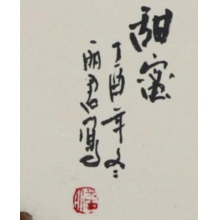 甜蜜
丁酉年冬
丽君写